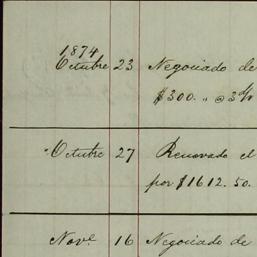 1874
Octubre 23 Negociado de
$300. " @ 3 d/v
Octubre 27 Renovado el
por $1612.50.
Nov.e 16 Negociado de